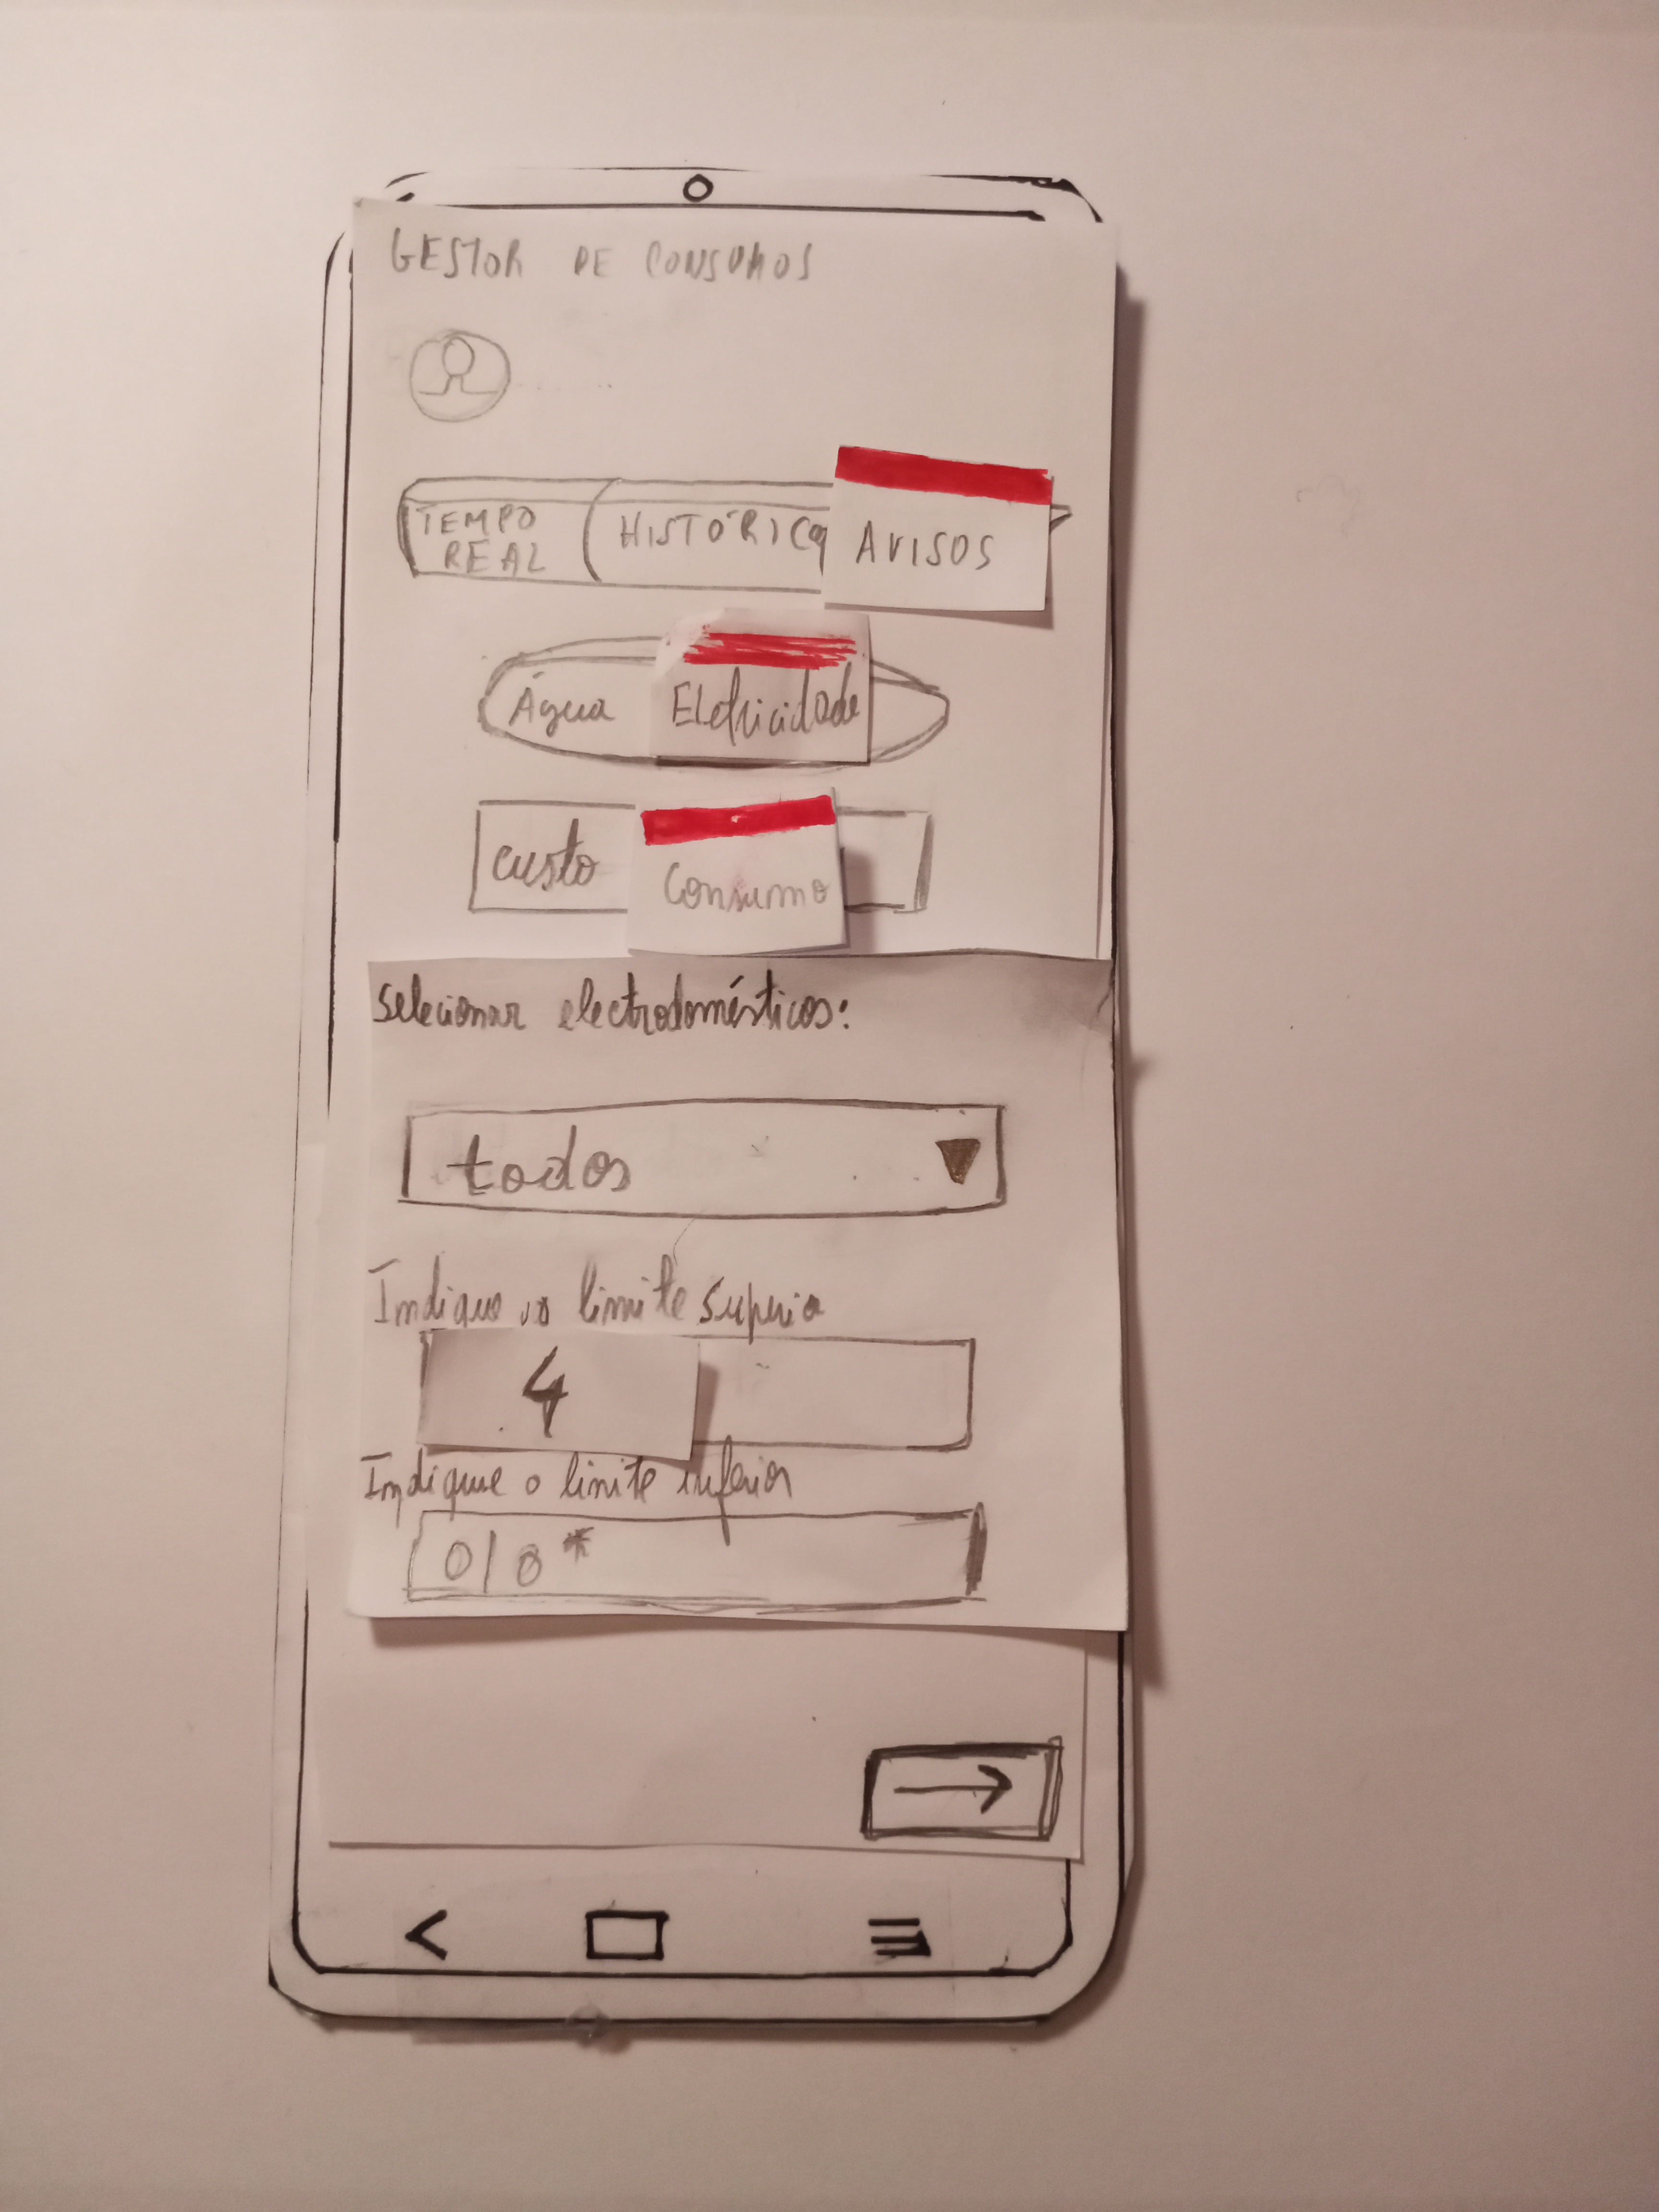 GESTOR DE CONSUMOS
TEMPO REAL HISTÓRICO AVISOS
Água Eletricidade
custo Consumo
Selecionar electrodomésticos:
todos
Indique o limite superio
4
Indique o limite inferior
0